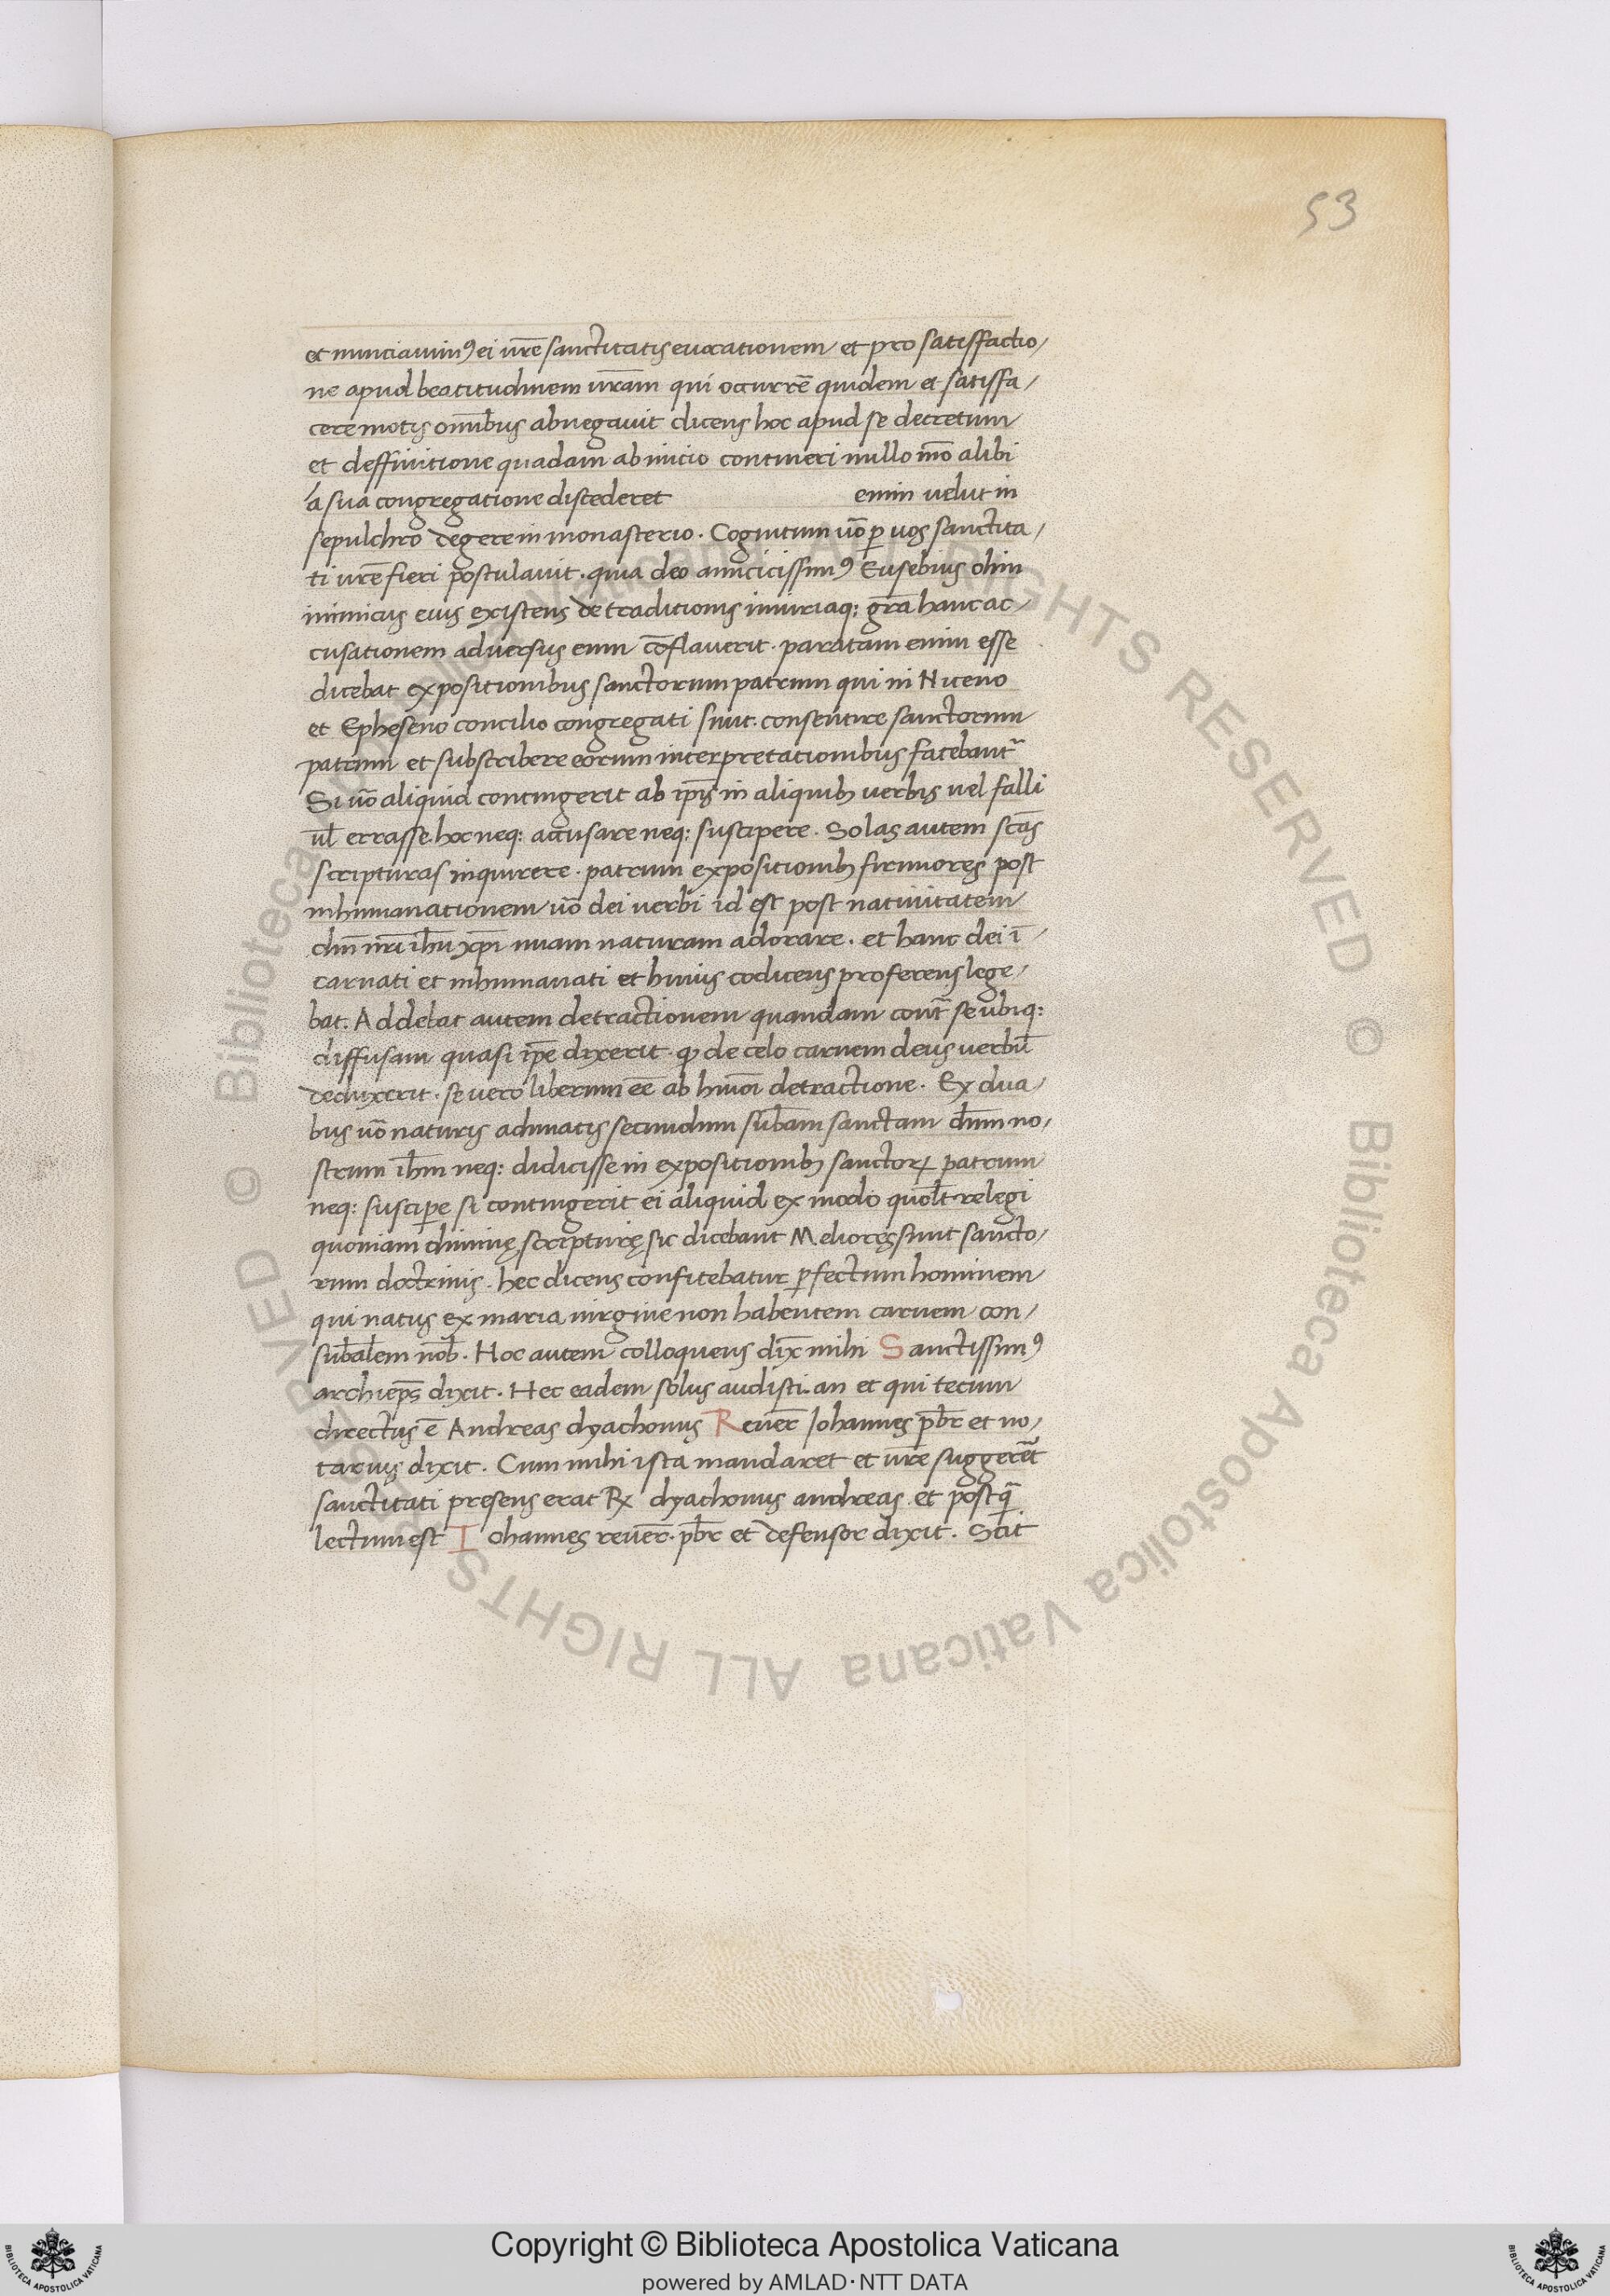 53
et nunciauimꝰ ei vr̄e sanctitatis euocationem et pro satisfactio/
ne apud beatitudinem vr̄am qui occurrē quidem et satisfa/
cere motis omībus abnegauit dicens hoc apud se decretum
et deffinitione quadam ab inicio contineri nullo mō alibi
a sua congregatione discederet enim velut in
sepulchro degere in monasterio. Cognitum ūo ꝑ vos sanctita/
ti vr̄e fieri postulauit. quia deo amicicissimꝰ Eusebius olim
inimicus eius existens detraditionis iniuriaq: gr̄a hanc ac/
cusationem aduersus eum cōflauerit. paratam enim esse
dicebat expositionibus sanctorum patrum qui in Niceno
et Epheseno concilio congregati sunt. consentire sanctorum
patrum et subscribere eorum interpretationibus fatebant᷑
Si ūo aliquid contingerit ab ip̄is in aliquibꝫ verbis vel falli
ul̄ errasse. hoc neq: accusare neq: suscipere. Solas autem sc̄as
scripturas inquirere. patrum expositionibꝫ firmiores post
inhumanationem ūo dei verbi id est post natiuitatem
dn̄i nr̄i ih̄u xp̄i vnam naturam adorare. et hanc dei ī/
carnati et inhumanati et huius codicens proferens lege/
bat. Addebat autem detractionem quandam cont̄ se ubiq:
diffusam quasi ip̄e dixerit. ꝙ de celo carnem deus verbū
deduxerit. se vero liberum eē ab hm̄oi detractione. Ex dua/
bus ūo naturis adunatis secundum sub̄am sanctam dn̄m no/
strum ih̄m neq: didicisse in expositionibꝫ sanctoꝝ patrum
neq: suscipe si contingerit ei aliquid ex modo quol̄t relegi
quoniam diuinę scripturę sic dicebant Meliores sunt sancto/
rum doctrinis. hec dicens confitebatur ꝑfectum hominem
qui natus ex maria virgine non habentem carnem con/
sub̄alem nob̄. Hoc autem colloquens dix̄ mihi Sanctissimꝰ
archiep̄s dixit. Hec eadem solus audisti. an et qui tecum
directus ē Andreas dyachonus Reuer̄ Johannes pb̄r et no/
tarius dixit. Cum mihi ista mandaret et vr̄e suggerēt
sanctitati presens erat R̄x dyachonus andreas. et postq̄
lectum est Iohannes reuer̄. pb̄r et defensor dixit. Scit
Copyright © Biblioteca Apostolica Vaticana
powered by AMLAD·NTT DATA